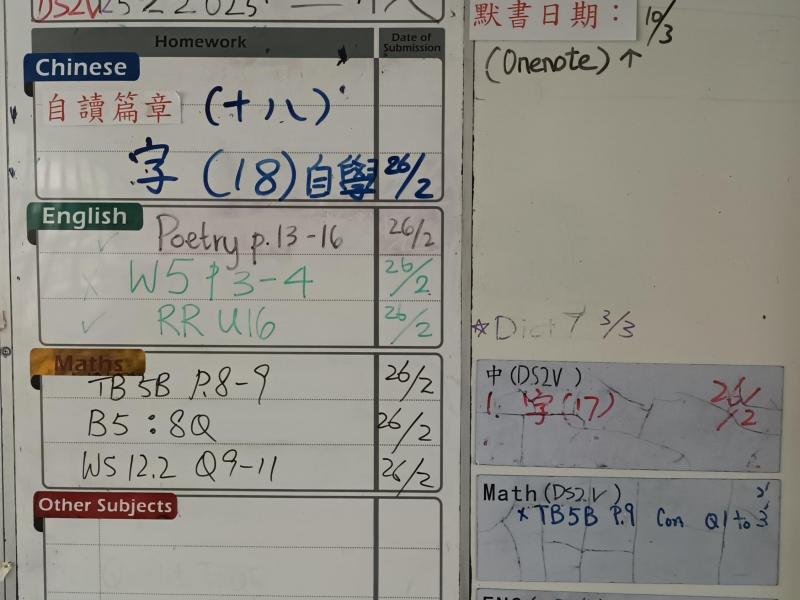 DS2V 25 2 2025
Homework
Date of Submission
Chinese
自讀篇章 (十八)
字 (18) 自學 26/2
English
Poetry p.13-16 26/2
W5 P3-4 26/2
RR U16 26/2
Maths
TB 5B P.8-9 26/2
B5 : 8Q 26/2
WS 12.2 Q9-11 26/2
Other Subjects
默書日期： 10/3
(Onenote) ↑
☆ Dict 7 3/3
中 (DS2V)
1. 字(17) 26/2
Math (DS2V)
* TB5B P.9 Con Q1 to 3